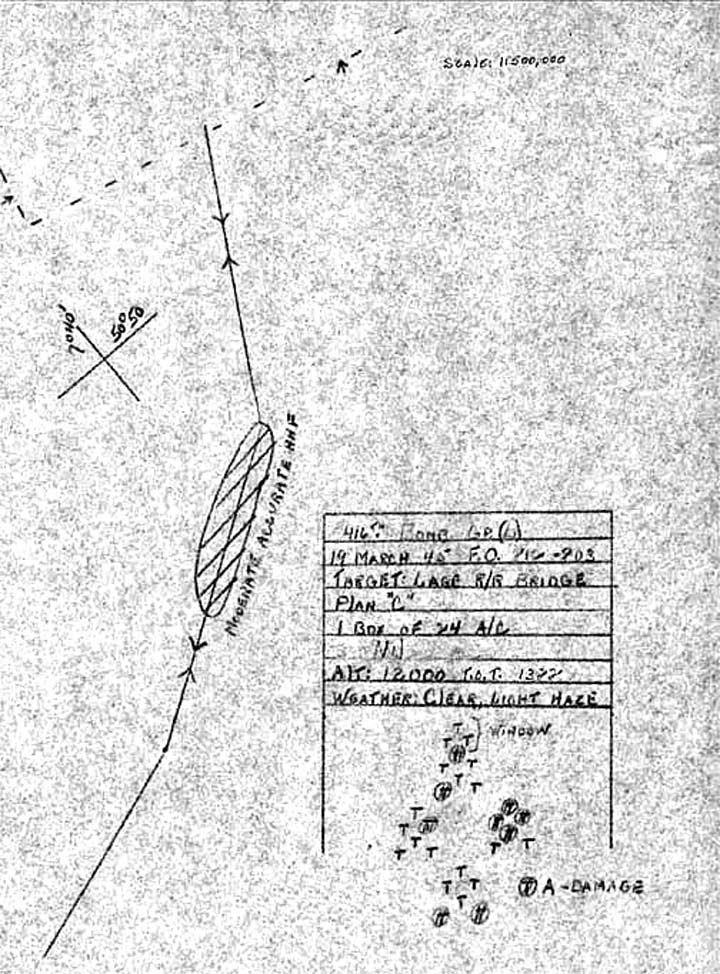 SCALE: 1:500,000
7°40'
50°50
MODERATE ACCURATE HHF
416TH BOMB GP. (L)
19 MARCH 45 F.O.
TARGET: LAGE R/R BRIDGE
PLAN "C"
1 BOX OF 24 A/C
ALT: 12000 T.O.T. 1322
WEATHER: CLEAR, LIGHT HAZE
WINDOW
A-DAMAGE